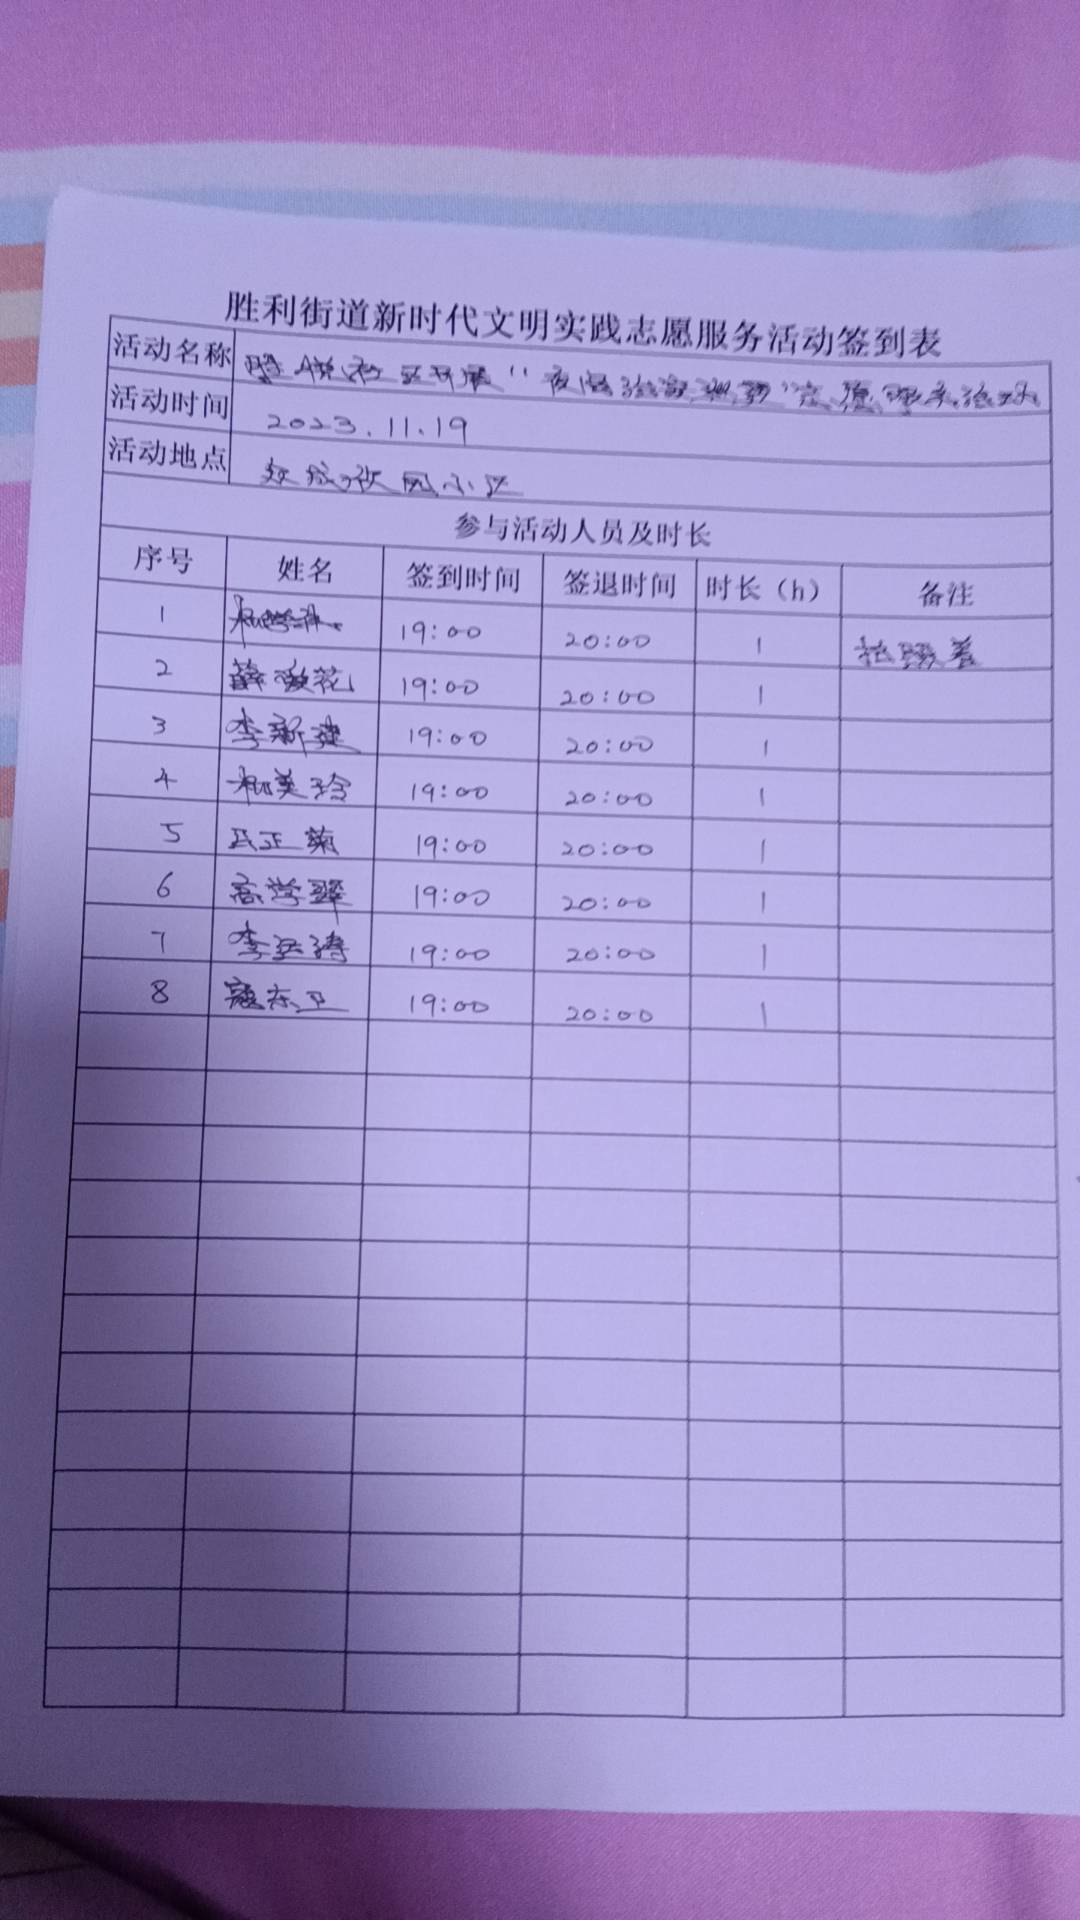 胜利街道新时代文明实践志愿服务活动签到表
活动名称 社区开展“夜间治安巡逻”志愿服务活动
活动时间 2023.11.19
活动地点 园小区
参与活动人员及时长
序号 姓名 签到时间 签退时间 时长(h) 备注
1 19:00 20:00 1 拍照着
2 薛敬花 19:00 20:00 1
3 李新建 19:00 20:00 1
4 柳美玲 19:00 20:00 1
5 正菊 19:00 20:00 1
6 高学翠 19:00 20:00 1
7 李 涛 19:00 20:00 1
8 寇东卫 19:00 20:00 1